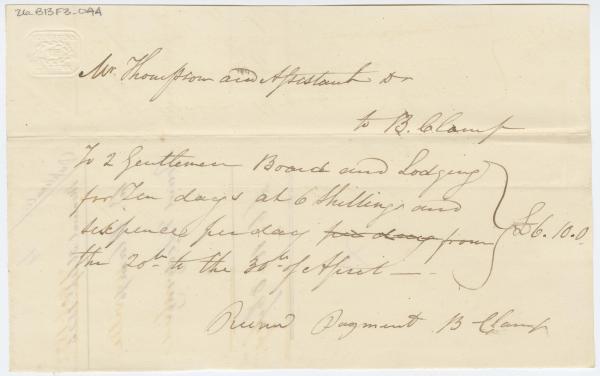 26-B13F3-04A
Mr. Thompson and Assistant Dr
to B. Clamp
To 2 Gentlemen Board and Lodging
for Ten days at 6 Shillings and
sixpence per day per day from
the 20th to the 30th of April —
£6.10.0
Payment B Clamp